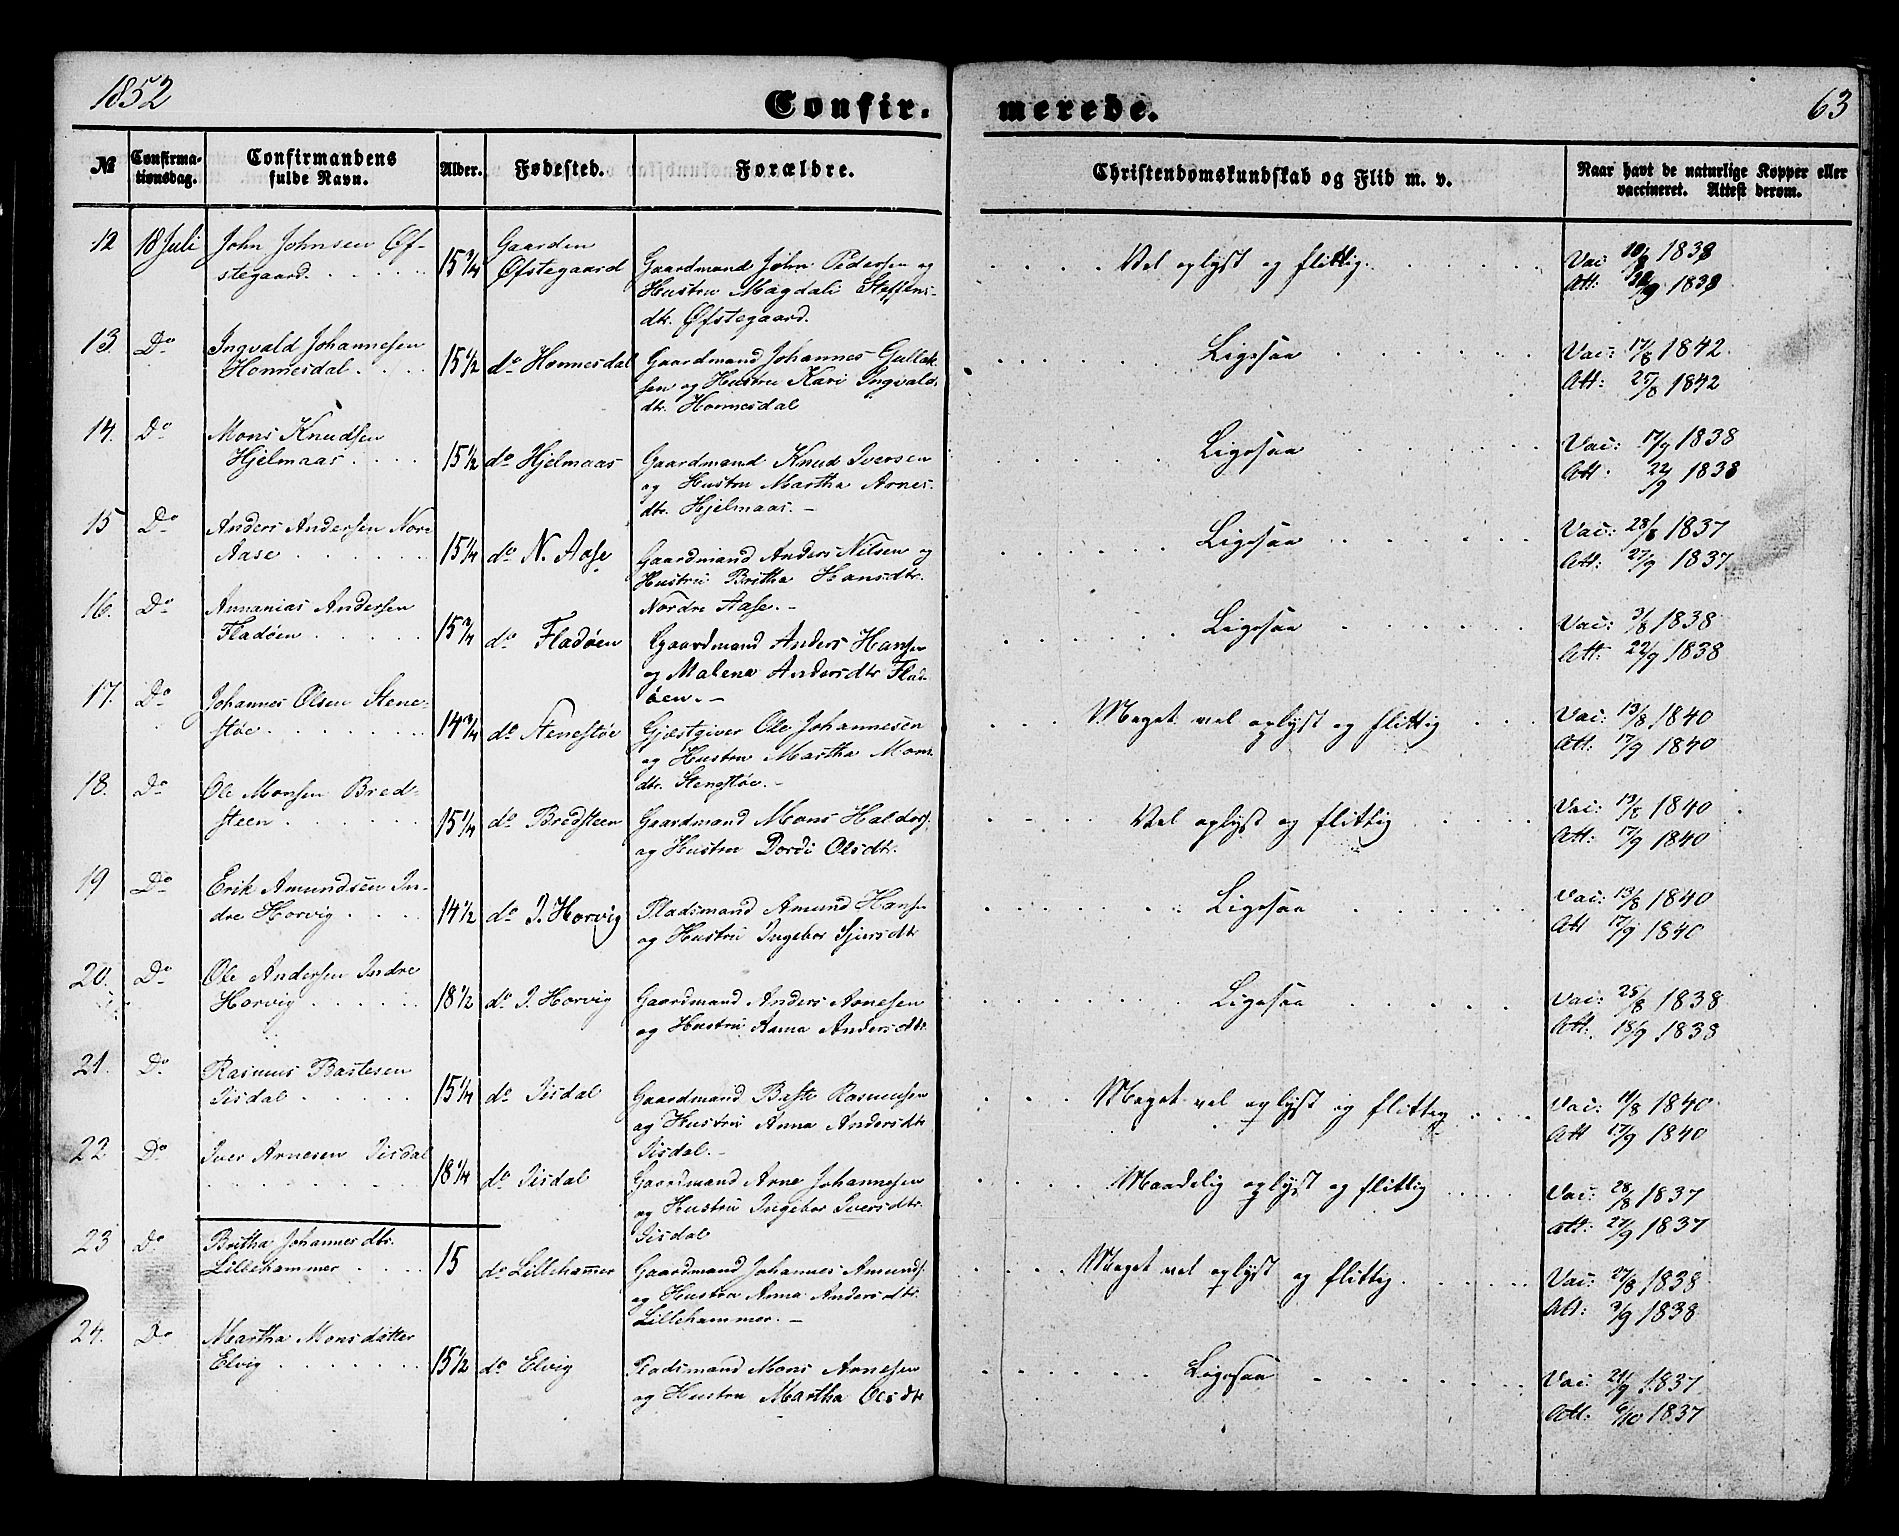 1852
Confir-
merede.
63
№
Confirma-
tionsdag.
Confirmandens
fulde Navn.
Alder.
Fødested.
Forældre.
Christendomskundskab og Flid m. v.
Naar havt de naturlige Kopper eller
vaccineret. Attest derom.
12 18 Juli John Johnsen Øf-
stegaard 15 3/4 Gaarden
Øfstegaard
Gaardmand John Pedersen og
Hustru Magdali Steffens-
dtr. Øfstegaard.
Vel oplyst og flittig.
Vac 1838
Att: 1838
13. Do Ingvald Johannesen
Honnesdal 15 1/2 do Honnesdal
Gaardmand Johannes Gullak-
sen og Hustru Kari Ingvalds
dtr. Honnesdal
Ligesaa
Vac: 17/8 1842.
Att: 25/8 1842
14. Do Mons Knudsen
Hjelmaas 15 1/2 do Hjelmaas
Gaardmand Knud Iversen
og Hustru Martha Arnes-
dtr. Hjelmaas. -
Ligesaa
Vac: 17/9 1838
Att: 22/9 1838
15 Do Anders Andersen Nore
Aase 15 1/4 do N. Aase
Gaardmand Anders Nilsen og
Hustru Britha Hansdtr.
Nordre Aase. -
Ligesaa
Vac: 28/8 1837
Att: 27/9 1837
16. Do Annanias Andersen
Fladøen 15 3/4 do Fladøen
Gaardmand Anders Hansen
og Malena Andersdtr Flad-
øen. -
Ligesaa
Vac: 3/8 1838
Att: 22/9 1838
17. Do Johannes Olsen Stene-
støe 14 3/4 do Stenestøe
Gjæstgiver Ole Johannesen
og Hustru Martha Mons
dtr. Stenestøe. -
Meget vel oplyst og flittig
Vac: 13/8 1840
Att: 17/9 1840
18. Do Ole Monsen Bred-
steen 15 1/4 do Bredsteen
Gaardmand Mons Haldors.
og Hustru Dordi Olsdtr.
Vel oplyst og flittig
Vac: 13/8 1840
Att: 17/9 1840
19 Do Erik Amundsen In-
dre Horvig 14 1/2 do I. Horvig
Pladsmand Amund Hans.
og Hustru Ingebor Sjursdtr
Ligesaa
Vac: 13/8 1840
Att 17/9 1840
20. Do Ole Andersen Indre
Horvig 18 1/2 do I. Horvig
Gaardmand Anders Arnesen
og Hustru Anna Andersdtr
Ligesaa
Vac: 25/8 1838
Att. 18/9 1838
21. Do Rasmus Bastesen
Iisdal 15 1/4 do Iisdal
Gaardmand Baste Rasmussen
og Hustru Anna Andersdtr
Iisdal. -
Meget vel oplyst og flittig
Vac: 19/8 1840
Att 17/9 1840
22 Do Iver Arnesen Iisdal
18 1/4 do Iisdal
Gaardmand Arne Johannesen
og Hustru Ingebor Iversdtr.
Iisdal
Maadelig oplyst og flittig
Vac: 28/8 1837
Att: 27/9 1837
23 Do Britha Johannesdtr.
Lillehammer 15 do Lillehammer
Gaardmand Johannes Amunds.
og Hustru Anna Andersdtr.
Lillehammer. -
Meget vel oplyst og flittig.
Vac: 27/8 1838
Att: 3/9 1838
24. Do Martha Monsdatter
Elvig 15 1/2 do Elvig
Pladsmand Mons Arnesen
og Hustru Martha Olsdtr
Ligesaa
Vac: 21/9 1837
Att: 6/10 1837